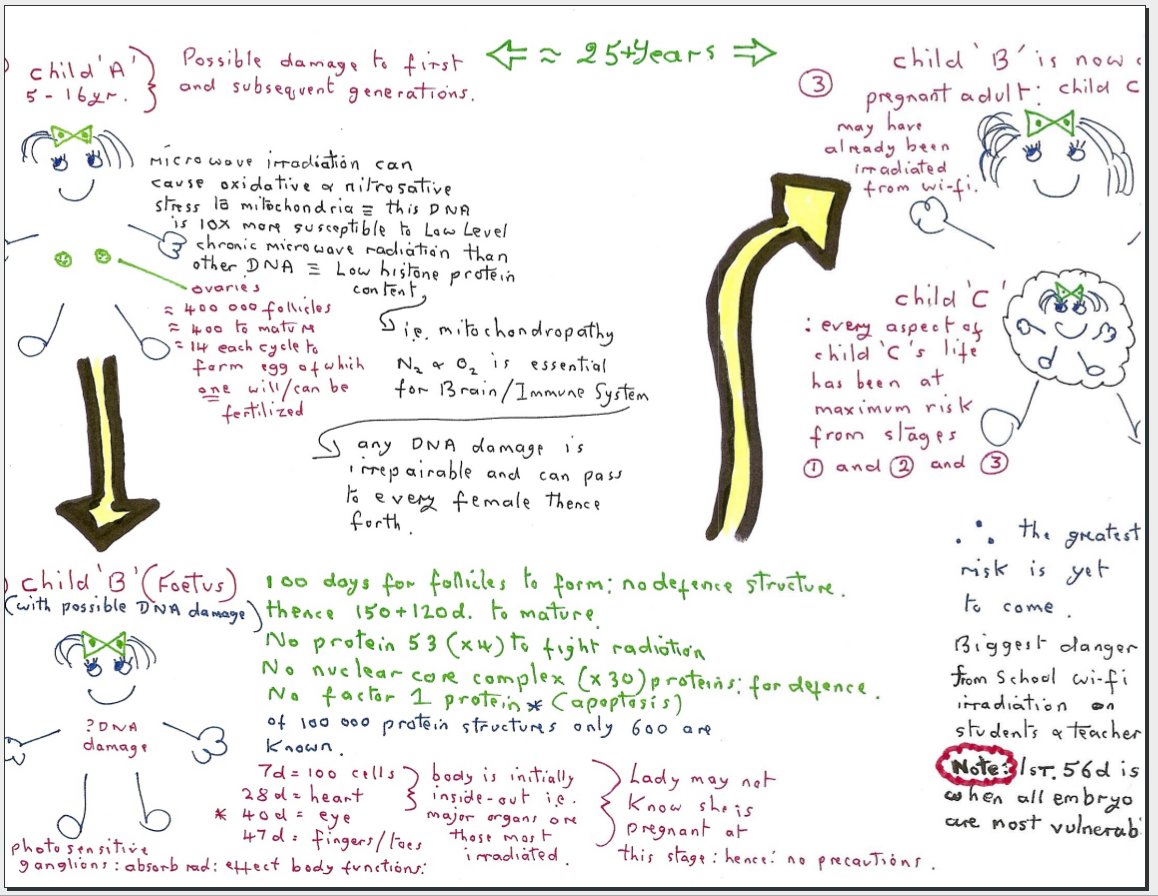 ) child 'A' 
5 - 16yr.
Possible damage to first
and subsequent generations.
⇐ ≈ 25+Years ⇒
microwave irradiation can
cause oxidative & nitrosative
stress to mitochondria ≡ this DNA
is 10x more susceptible to Low Level
chronic microwave radiation than
other DNA ≡ Low histone protein
content,
i.e. mitochondropathy
N2 & O2 is essential
for Brain/Immune System
any DNA damage is
irrepairable and can pass
to every female thence
forth.
ovaries
≈ 400 000 follicles
≈ 400 to mature
≈ 14 each cycle to
form egg of which
one will/can be
fertilized
③
child 'B' is now
pregnant adult: child C
may have
already been
irradiated
from wi-fi.
child 'C'
: every aspect of
child 'C's life
has been at
maximum risk
from stages
① and ② and ③
∴ the greatest
risk is yet
to come.
Biggest danger
from School wi-fi
irradiation on
students & teacher
Note: 1st. 56d is
when all embryo
are most vulnerab
) child 'B' (Foetus)
(with possible DNA damage)
? DNA
damage
100 days for follicles to form: no defence structure.
thence 150+120d. to mature
No protein 53 (x4) to fight radiation
No nuclear core complex (x30) proteins: for defence.
No factor 1 protein * (apoptosis)
of 100 000 protein structures only 600 are
known.
7d = 100 cells
28d = heart
* 40d = eye
47d = fingers/toes
body is initially
inside-out i.e.
major organs are
those most
irradiated.
Lady may not
Know she is
pregnant at
this stage: hence: no precautions.
photosensitive
ganglions: absorb rad: effect body functions: